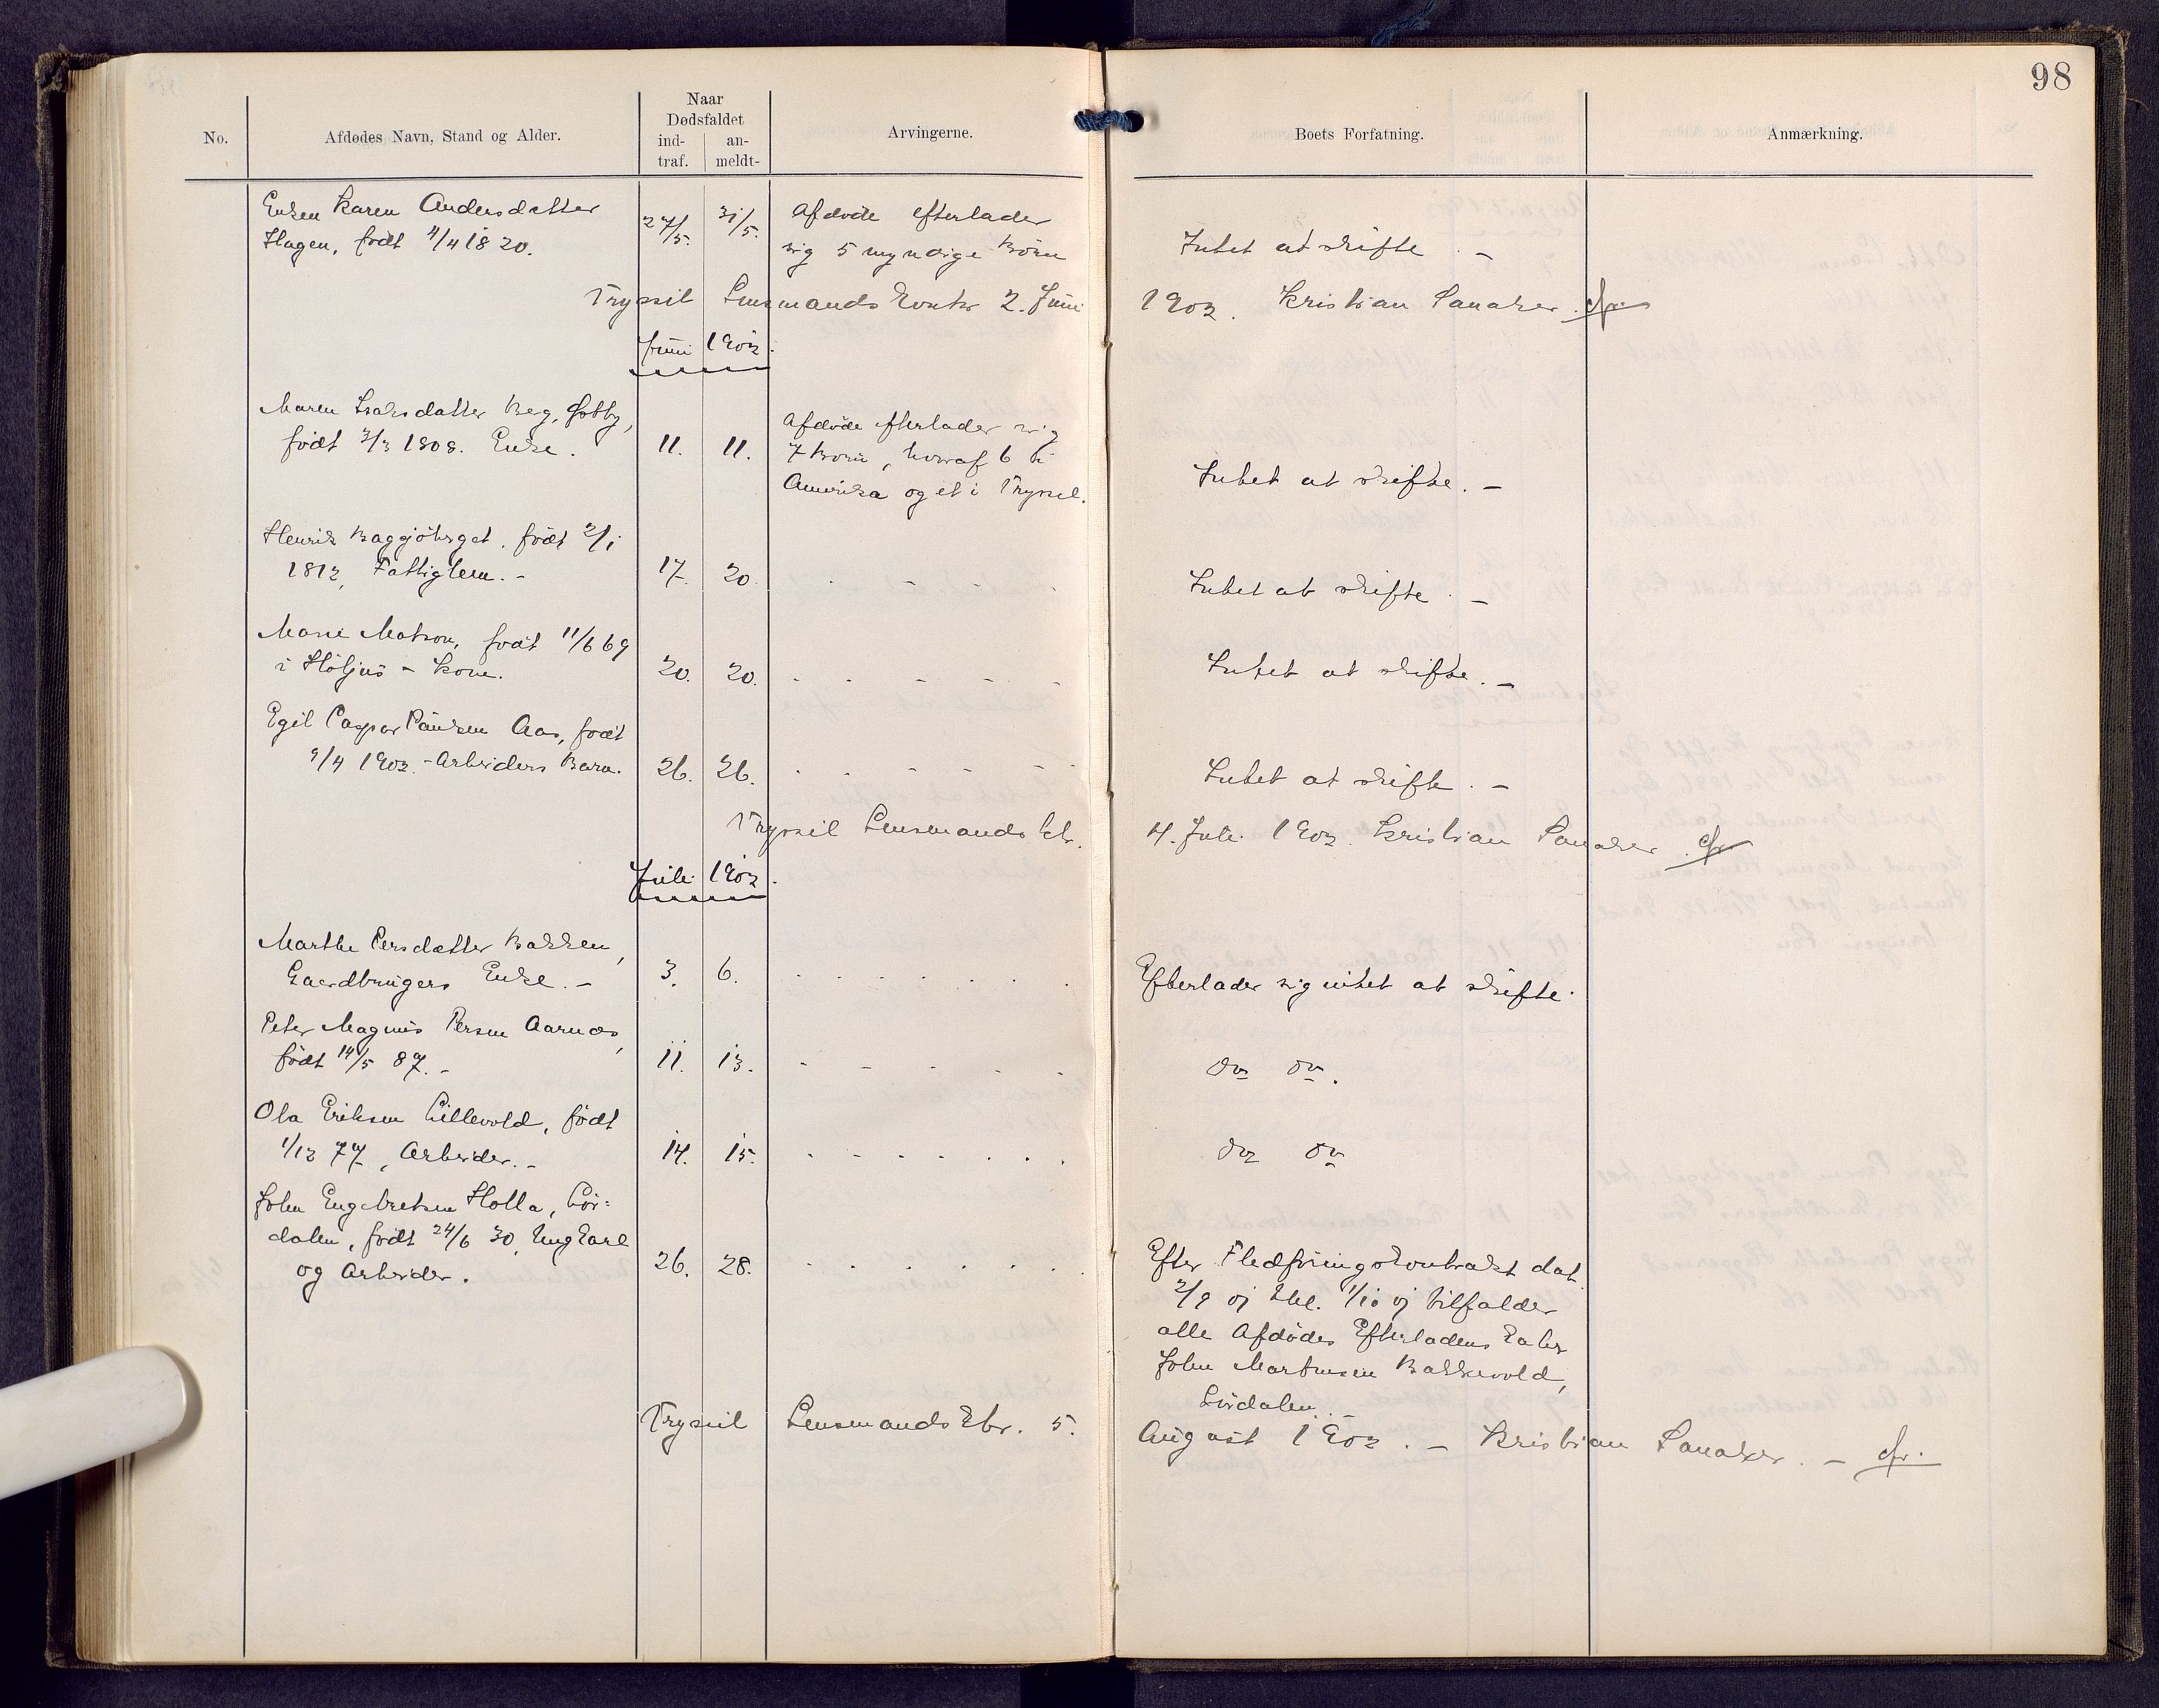 98
No.
Afdødes Navn, Stand og Alder.
Naar
Dødsfaldet
ind-
traf.
an-
meldt-
Arvingerne.
Boets Forfatning.
Anmærkning.
Enken Karen Andersdatter
Hagen, født 4/4 1820.
27/5.
31/5.
Afdøde efterlader
sig 5 myndige Børn
Intet at skifte. -
Trysil Lensmands Kontr 2. Juni 1902. Kristian Sanaker
Juni 1902.
Maren Isaksdatter Berg,
født 3/3 1808. Enke.
11. 11.
Afdøde efterlader sig
7 Børn, hvoraf 6 i
Amerika og et i Trysil.
Intet at skifte. -
Henrik Baggjöberget. født 2/1
1812, Fattiglem. -
17. 20.
Intet at skifte. -
Marie Matson, født 11/6 69
i Höljus - Kone.
20. 20.
Intet at skifte. -
Egil Caspar Paulsen Aas, født
9/4 1902. - Arbeiders Barn.
26. 26.
Intet at skifte. -
Trysil Lensmands ktr. 4. Juli 1902. Kristian Sanaker
Juli 1902.
Marthe Persdatter Bakken,
Gaardbrugers Enke. -
3. 6.
Efterlader sig intet at skifte.
Peter Magnus Persen Aarnæs,
født 14/5 87. -
11. 13.
do do.
Ola Eriksen Lillevold, født
1/12 77, Arbeider. -
14. 15.
do do
John Engebretsen Holla, Lör=
dalen, født 24/6 30, Ungkarl
og Arbeider.
26. 28.
Efter Fledføringskontrakt dat.
2/9 01 thl. 1/10 01 tilfalder
alle Afdødes Efterladenskaber
John Martinsen Bakkevold,
Lördalen. -
Trysil Lensmands Ktr. 5. August 1902. - Kristian Sanaker. -